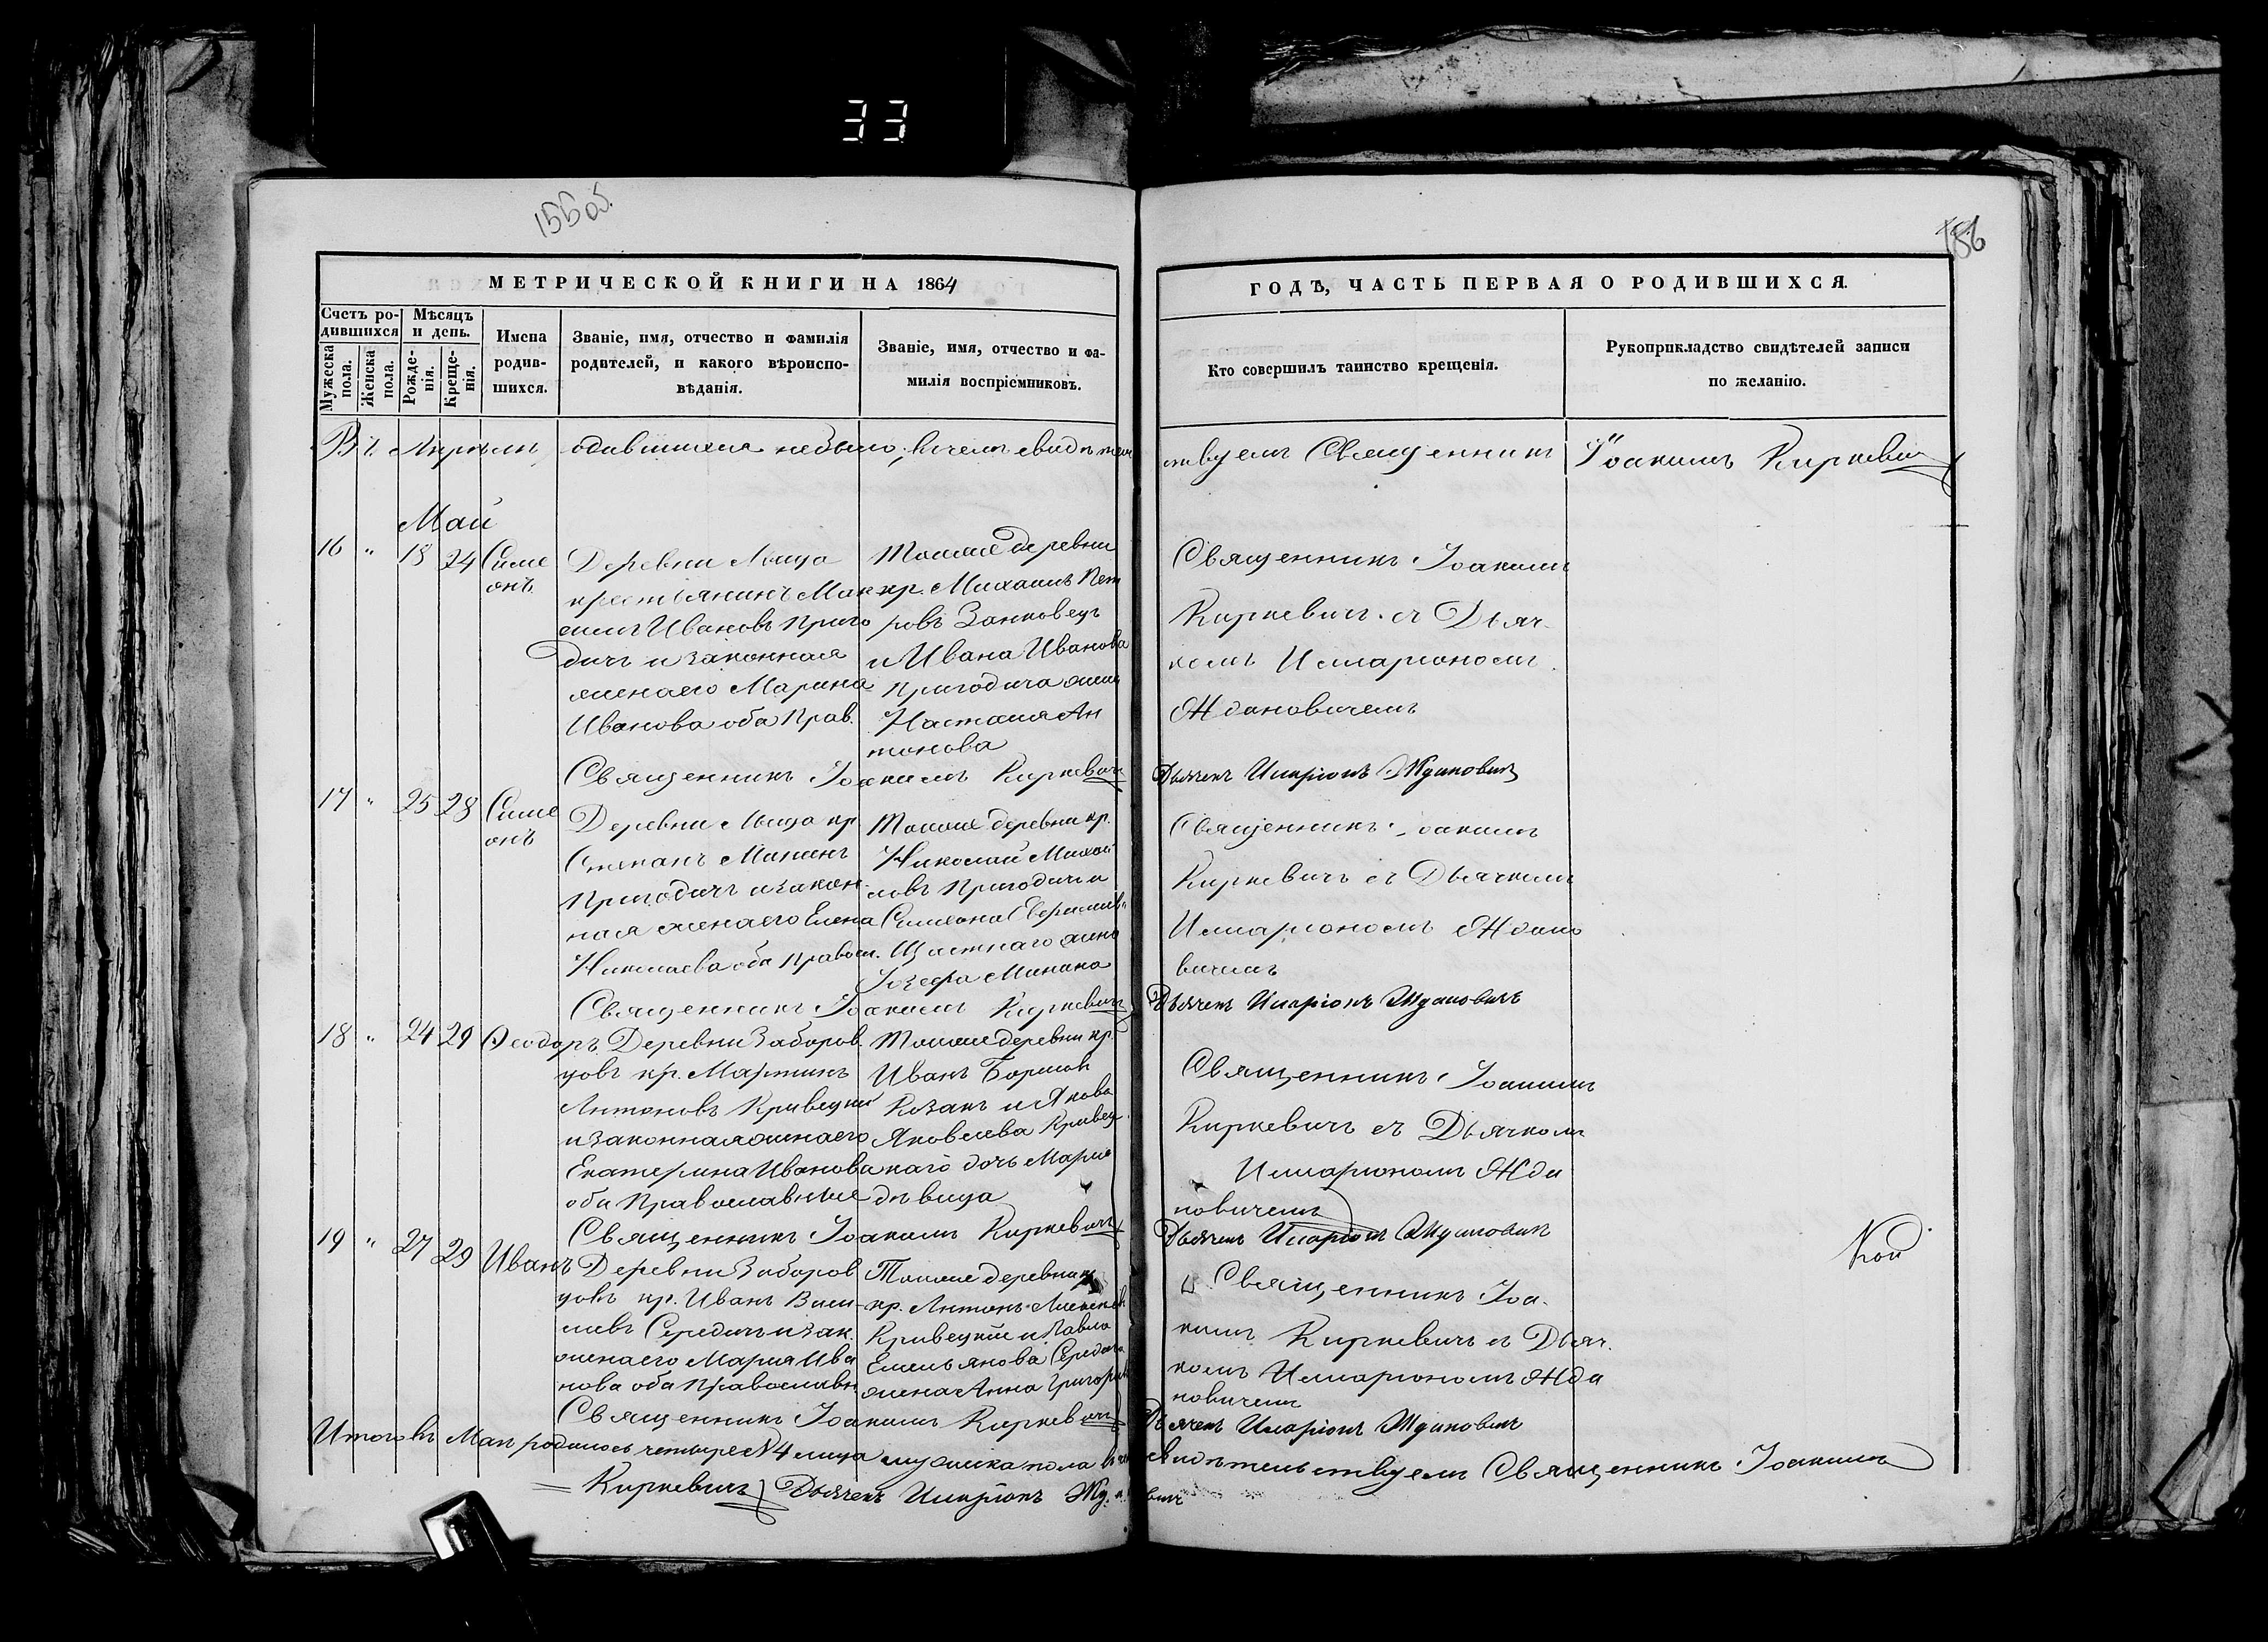 33
155 об.
156
МЕТРИЧЕСКОЙ КНИГИ НА 1864
ГОДѢ, ЧАСТЬ ПЕРВАЯ О РОДИВШИХСЯ.
Счетъ ро-
дившихся
Мужеска пола.
Женска пола.
Мѣсяцъ
и день.
Рожде-
нія.
Креще-
нія.
Имена
родив-
шихся.
Званіе, имя, отчество и фамилія
родителей, и какого вѣроиспо-
вѣданія.
Званіе, имя, отчество и фа-
милія воспріемниковъ.
Кто совершилъ таинство крещенія.
Рукоприкладство свидѣтелей записи
по желанію.
Въ Апрѣли родившихся небыло, в чемъ свидѣтель
ствуемъ Священникъ Іоакимъ Киркевич
Май
16 " 18 24
Симе
онъ
Деревни
крестьянинъ Мак
симъ Ивановъ Приго
дичъ и законная
жена его Марина
Иванова оба Прав.
Тоиже деревни
кр. Михаилъ Пет
ровъ Занковецъ
и Ивана Иванова
Пригодича жена
Настасия Ан
тонова
Священникъ Іоакимъ
Киркевичъ съ Дьяч
комъ Иларіономъ
Ждановичемъ
Священникъ Іоакимъ Киркевичъ
Дьячекъ Иларіонъ Ждановичъ
17 " 25 28
Симе
онъ
Деревни кр
Степанъ
Пригодичъ и закон
ная жена его Елена
Николаева оба Правосл.
Тоиже деревни кр.
Николай Михай
ловъ Пригодичъ и
Симеона
жена
Священникъ Іоакимъ
Киркевичъ съ Дьячкомъ
Иларіономъ Ждано
вичемъ
Священникъ Іоакимъ Киркевичъ
Дьячекъ Иларіонъ Ждановичъ
18 " 24 29
Ѳеодоръ
Деревни Заборов
цовъ кр. Мартинъ
Антоновъ Кривецкій
и законная жена его
Екатерина Иванова
оба Православные
Тоиже деревни кр.
Иванъ
Козакъ и Якова
Яковлева Кривец
каго дочь Марія
дѣвица
Священникъ Іоакимъ
Киркевичъ съ Дьячкомъ
Иларіономъ Жда
новичемъ
Священникъ Іоакимъ Киркевичъ
Дьячекъ Иларіонъ Ждановичъ
19 " 27 29
Иванъ
Деревни Заборов
цовъ кр. Иванъ Васи
лиевъ Середичъ и зак.
жена его Мария Ива
нова оба Православн
Тоиже деревни
кр. Антонъ Алексеев
Кривецкій и Павла
Емельянова Середича
жена Анна Григорьев
Священникъ Іоа
кимъ Киркевичъ съ Дьяч
комъ Иларіономъ Жда
новичемъ
Священникъ Іоакимъ Киркевичъ
Дьячекъ Иларіонъ Ждановичъ
Итого въ Маи родилось четыре № 4 лица мужеска пола в чемъ свидѣтельствуемъ Священникъ Іоакимъ
Киркевичъ Дьячекъ Иларіонъ Ждановичъ